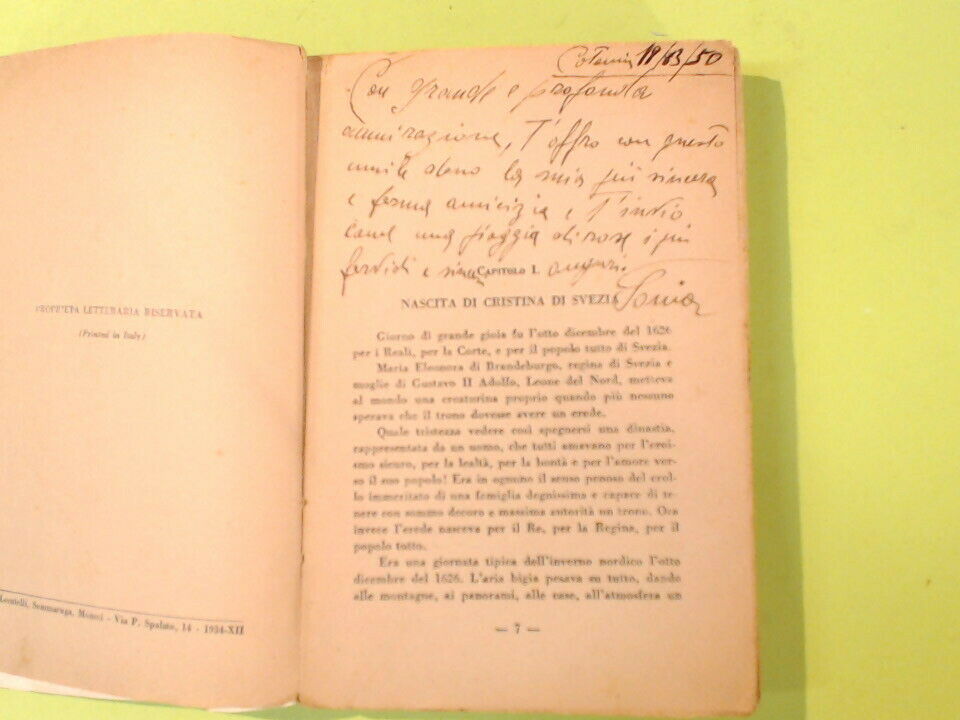 PROPRIETÀ LETTERARIA RISERVATA
(Printed in Italy)
Sommaruga, - Via P. Spalato, 14 - 1934-XII
18/03/50
Con grande e profonda
ammirazione, T'offro con questo
umile dono la mia più sincera
e ferma amicizia e T'invio
come una pioggia di rose i più
fervidi e sinceri auguri.
Sonia
CAPITOLO I.
NASCITA DI CRISTINA DI SVEZIA
Giorno di grande gioia fu l'otto dicembre del 1626
per i Reali, per la Corte, e per il popolo tutto di Svezia.
Maria Eleonora di Brandeburgo, regina di Svezia e
moglie di Gustavo II Adolfo, Leone del Nord, metteva
al mondo una creaturina proprio quando più nessuno
sperava che il trono dovesse avere un erede.
Quale tristezza vedere così spegnersi una dinastia,
rappresentata da un uomo, che tutti amavano per l'eroi-
smo sicuro, per la lealtà, per la bontà e per l'amore ver-
so il suo popolo! Era in ognuno il senso penoso del crol-
lo immeritato di una famiglia degnissima e capace di te-
nere con sommo decoro e massima autorità un trono. Ora
invece l'erede nasceva per il Re, per la Regina, per il
popolo tutto.
Era una giornata tipica dell'inverno nordico l'otto
dicembre del 1626. L'aria bigia pesava su tutto, dando
alle montagne, ai panorami, alle case, all'atmosfera un
— 7 —